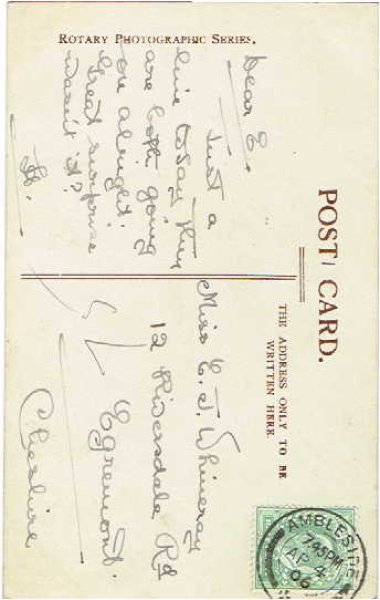 ROTARY PHOTOGRAPHIC SERIES.
POST CARD.
THE ADDRESS ONLY TO BE
WRITTEN HERE.
Dear E
Just a
line today. They
are both going
on alright.
Great surprise
wasn't it?
Miss E. J. Whineray
12 Riversdale Rd
Egremont.
Cheshire
AMBLESIDE
7.45PM
AP 4
06